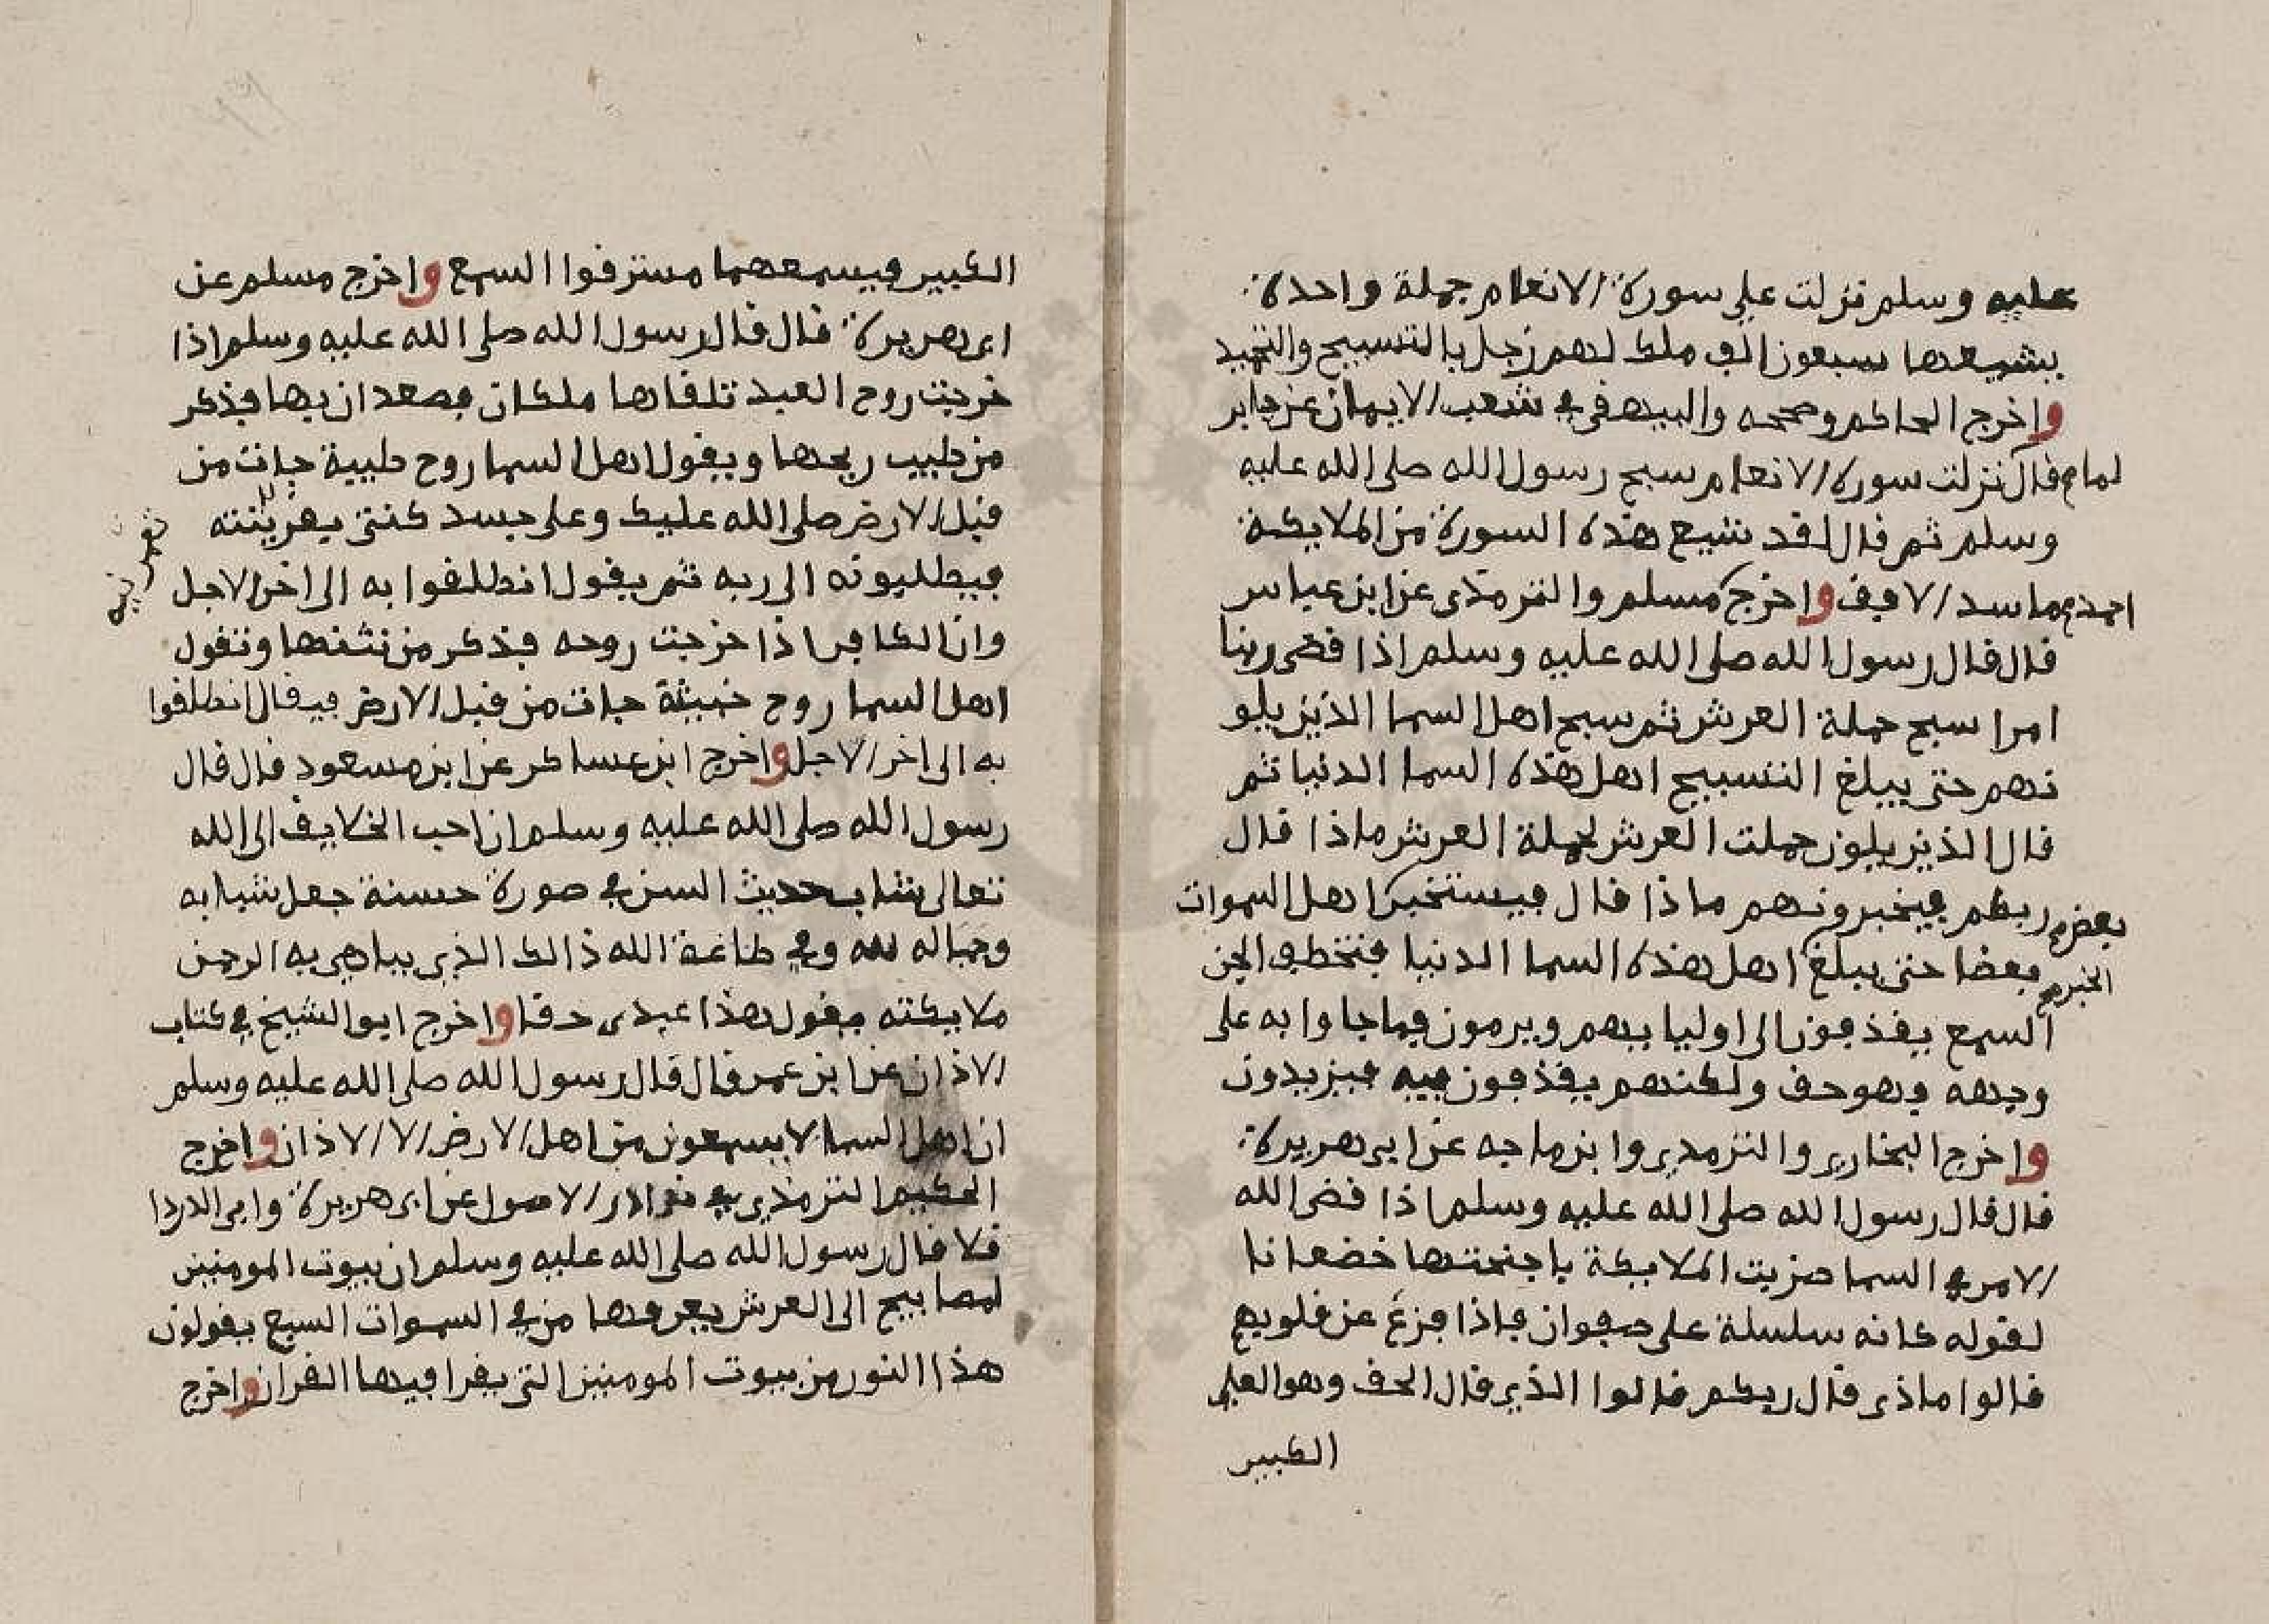 عليه وسلم نزلت علي سورة الانعام جملة واحدة
يشيعها سبعون الف ملك لهم زجل بالتسبيح والتحميد
واخرج الحاكم وصححه والبيهقي في شعب الايمان عن جابر
لما قال نزلت سورة الانعام سبح رسول الله صلى الله عليه
وسلم ثم قال لقد شيع هذه السورة من الملايكة
ما سد الافق واخرج مسلم والترمذي عن ابن عباس
قال قال رسول الله صلى الله عليه وسلم اذا قضى ربنا
امرا سبح حملة العرش ثم سبح اهل السما الذين يلو
نهم حتى يبلغ التسبيح اهل هذه السما الدنيا ثم
قال الذين يلون حملت العرش لحملة العرش ماذا قال
ربكم فيخبرونهم ماذا قال فيستخبر اهل السموات
بعض
بعضا حتى يبلغ اهل هذه السما الدنيا فتخطف الجن
الخبر
السمع يقذفون الى اوليايهم ويرمون فما جاوا به على
وجهه فهو حق ولكنهم يقذفون فيه فيزيدون
واخرج البخاري والترمذي وابن ماجه عن ابي هريرة
قال قال رسول الله صلى الله عليه وسلم اذا قضى الله
الامر في السما ضربت الملايكة باجنحتها خضعانا
لقوله كانه سلسلة على صفوان فاذا فزع عن قلوبهم
قالوا ماذى قال ربكم قالوا الذي قال الحق وهو العلي
الكبير
الكبير فيسمعهما مسترقوا السمع واخرج مسلم عن
ابى هريرة قال قال رسول الله صلى الله عليه وسلم اذا
خرجت روح العبد تلقاها ملكان فصعدان بها فذكر
من طيب ريحها ويقول اهل السما روح طيبة جات من
قبل الارض صلى الله عليك وعلى جسد كنتى
فيطليونه الى ربه ثم يقول انطلقوا به الى اخر الاجل
وان الكافر اذا خرجت روحه فذكر من نثنها وتقول
اهل السما روح خبيثة جات من قبل الارض فيقال انطلقوا
به الى اخر الاجل واخرج ابن عساكر عن ابن مسعود قال قال
رسول الله صلى الله عليه وسلم ان احب الخلايق الى الله
تعالى شاب حديث السن في صورة حسنة جعل شبابه
وجماله لله وفي طاعة الله ذالك الذي يباهي به الرحمن
ملايكته يقول هذا عبدى حقا واخرج ابوا الشيخ في كتاب
الاذان عن ابن عمر قال قال رسول الله صلى الله عليه وسلم
ان اهل السما لا يسمعون من اهل الارض الا الاذان واخرج
الحكيم الترمذي في نوادر الاصول عن ابى هريرة وابى الدردا
قلا قال رسول الله صلى الله عليه وسلم ان بيوت المومنين
لمصابيح الى العرش يعرفها من في السموات السبع يقولون
هذا النور من بيوت المومنين التي يقرا فيها القران واخرج